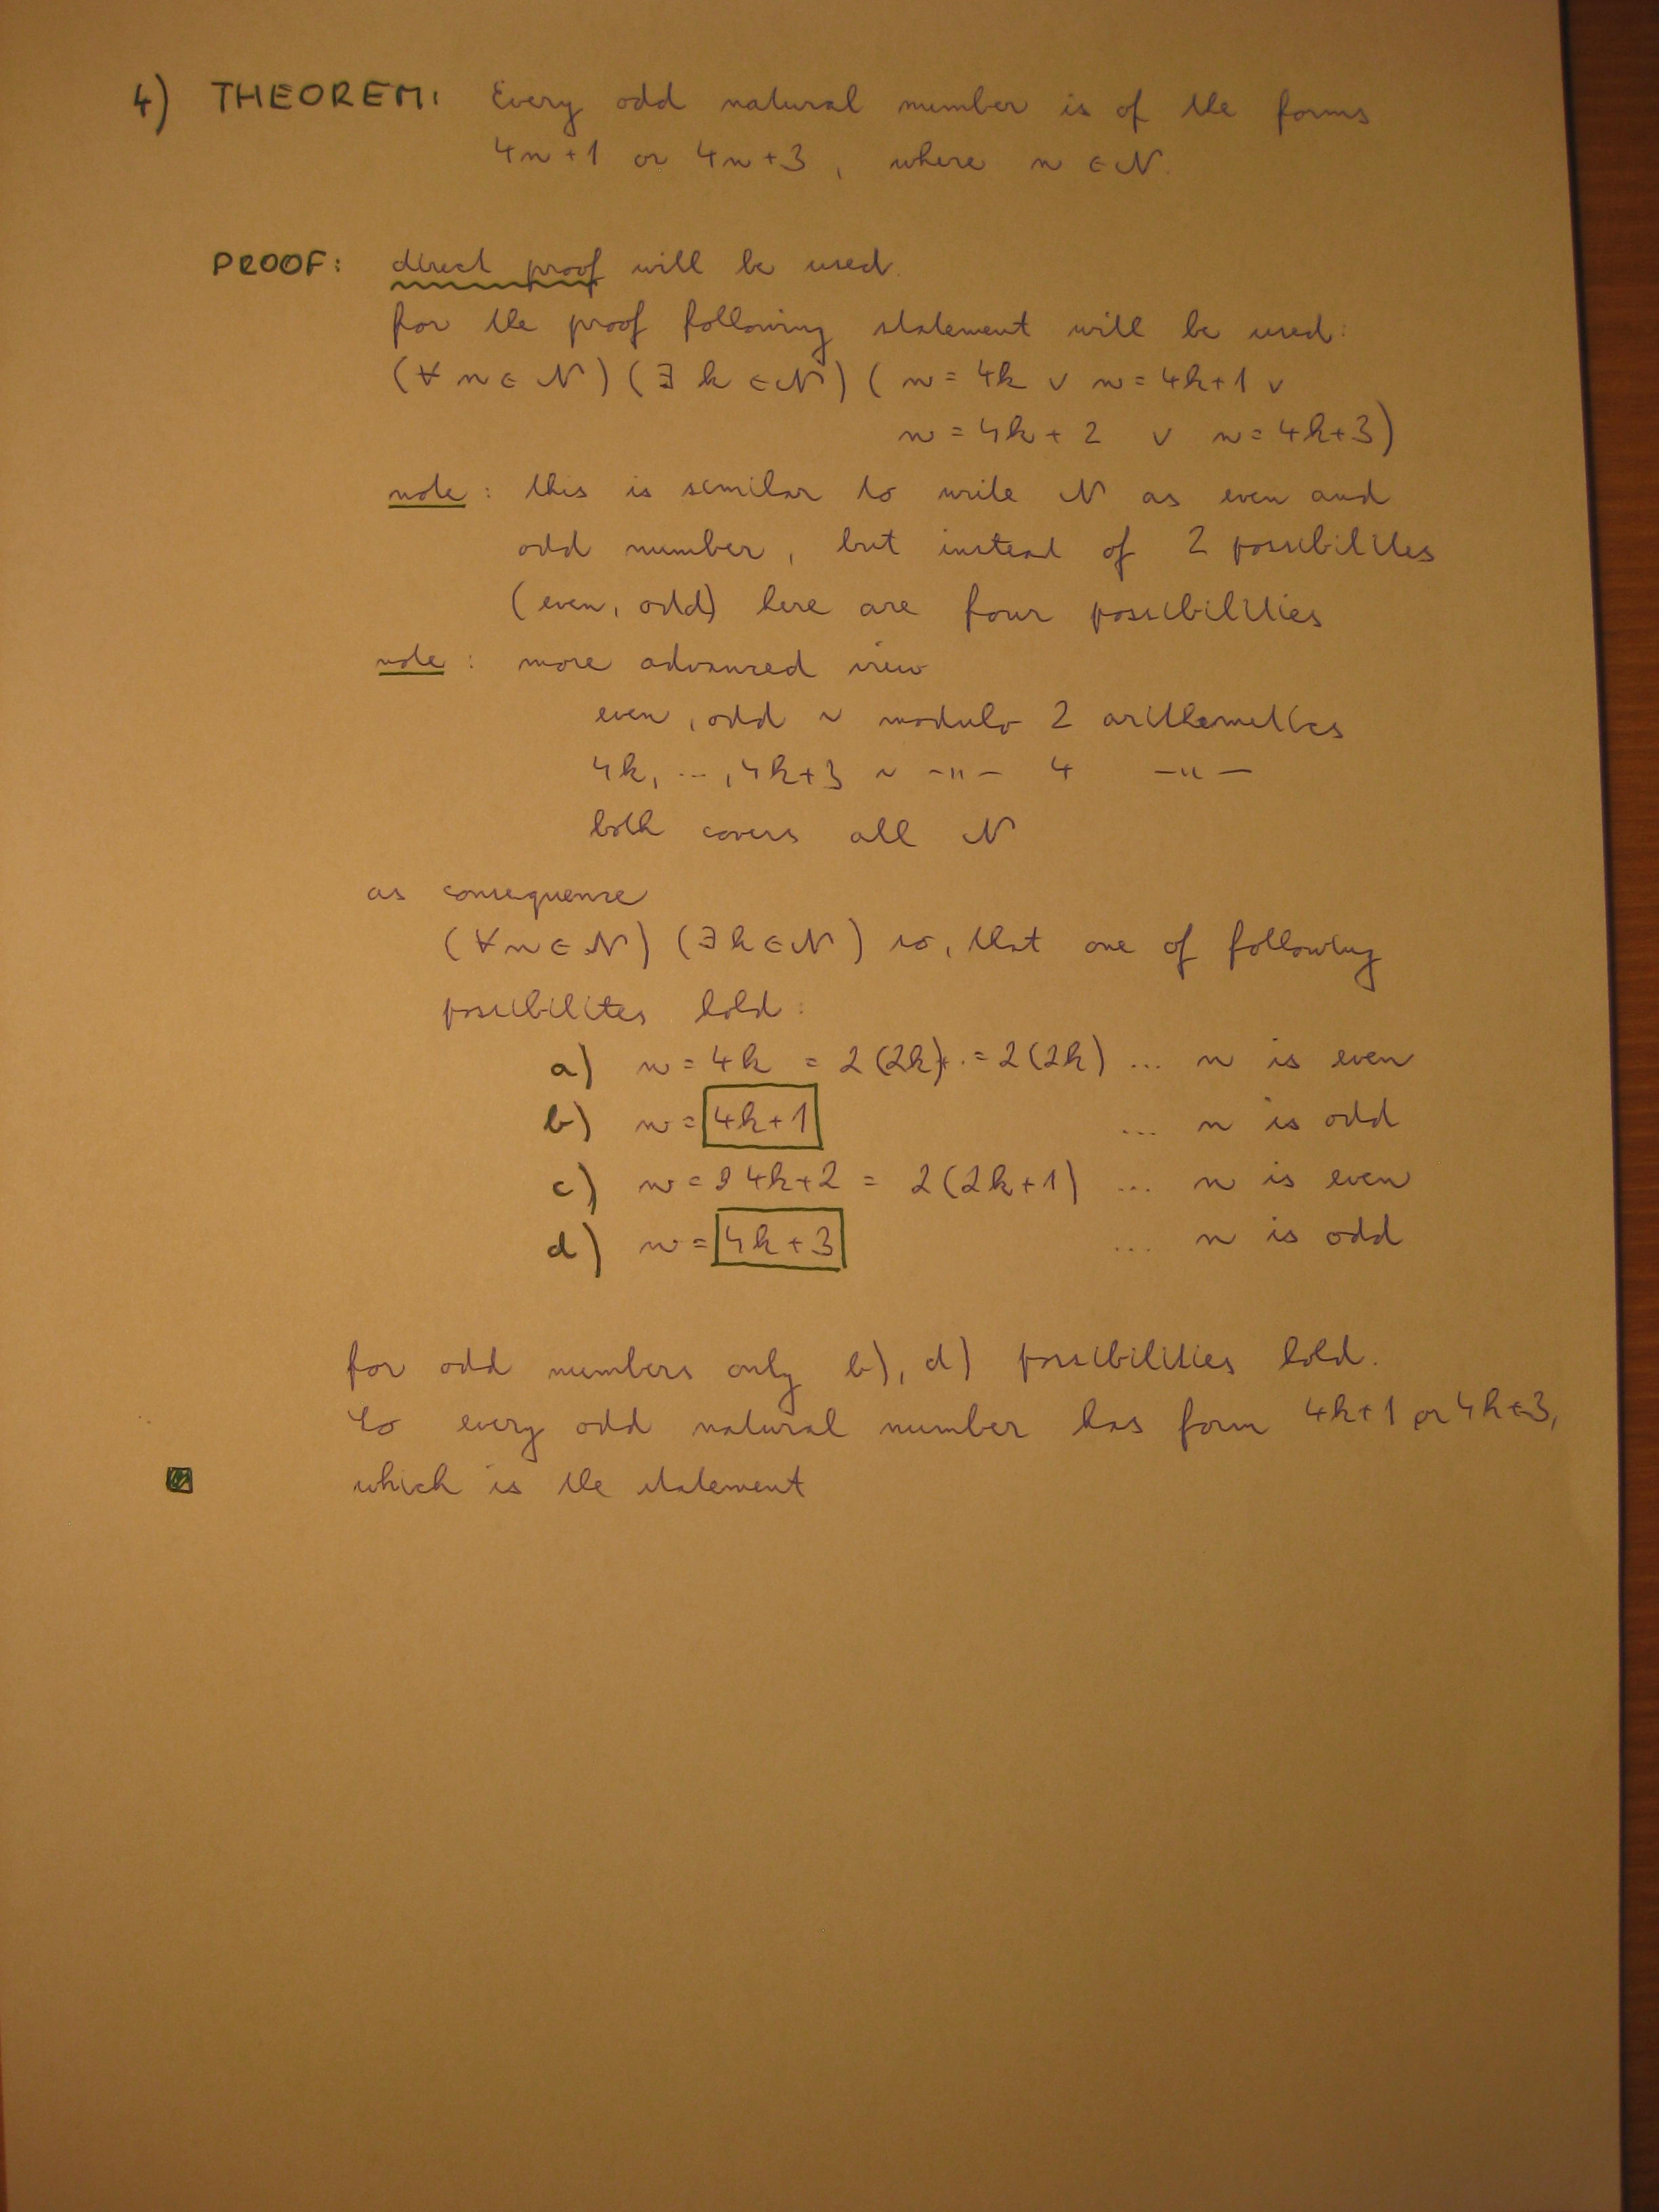 4) THEOREM: Every odd natural number is of the forms
4n+1 or 4n+3, where n ∈ N.
PROOF: direct proof will be used.
for the proof following statement will be used:
(∀ n ∈ N) (∃ k ∈ N) ( n = 4k ∨ n = 4k+1 ∨
n = 4k + 2 ∨ n = 4k+3)
note : this is similar to write N as even and
odd number, but instead of 2 possibilities
(even, odd) here are four possibilities
note : more advanced view
even, odd ~ modulo 2 arithemetics
4k, ..., 4k+3 ~ -"- 4 -"-
both covers all N
as consequence
(∀ n ∈ N) (∃ k ∈ N) so, that one of following
possibilites hold:
a) n = 4k = 2(2k) = 2(2k) ... n is even
b) n = 4k+1 ... n is odd
c) n = 4k+2 = 2(2k+1) ... n is even
d) n = 4k+3 ... n is odd
for odd numbers only b), d) possibilities hold.
So every odd natural number has form 4k+1 or 4k+3,
which is the statement